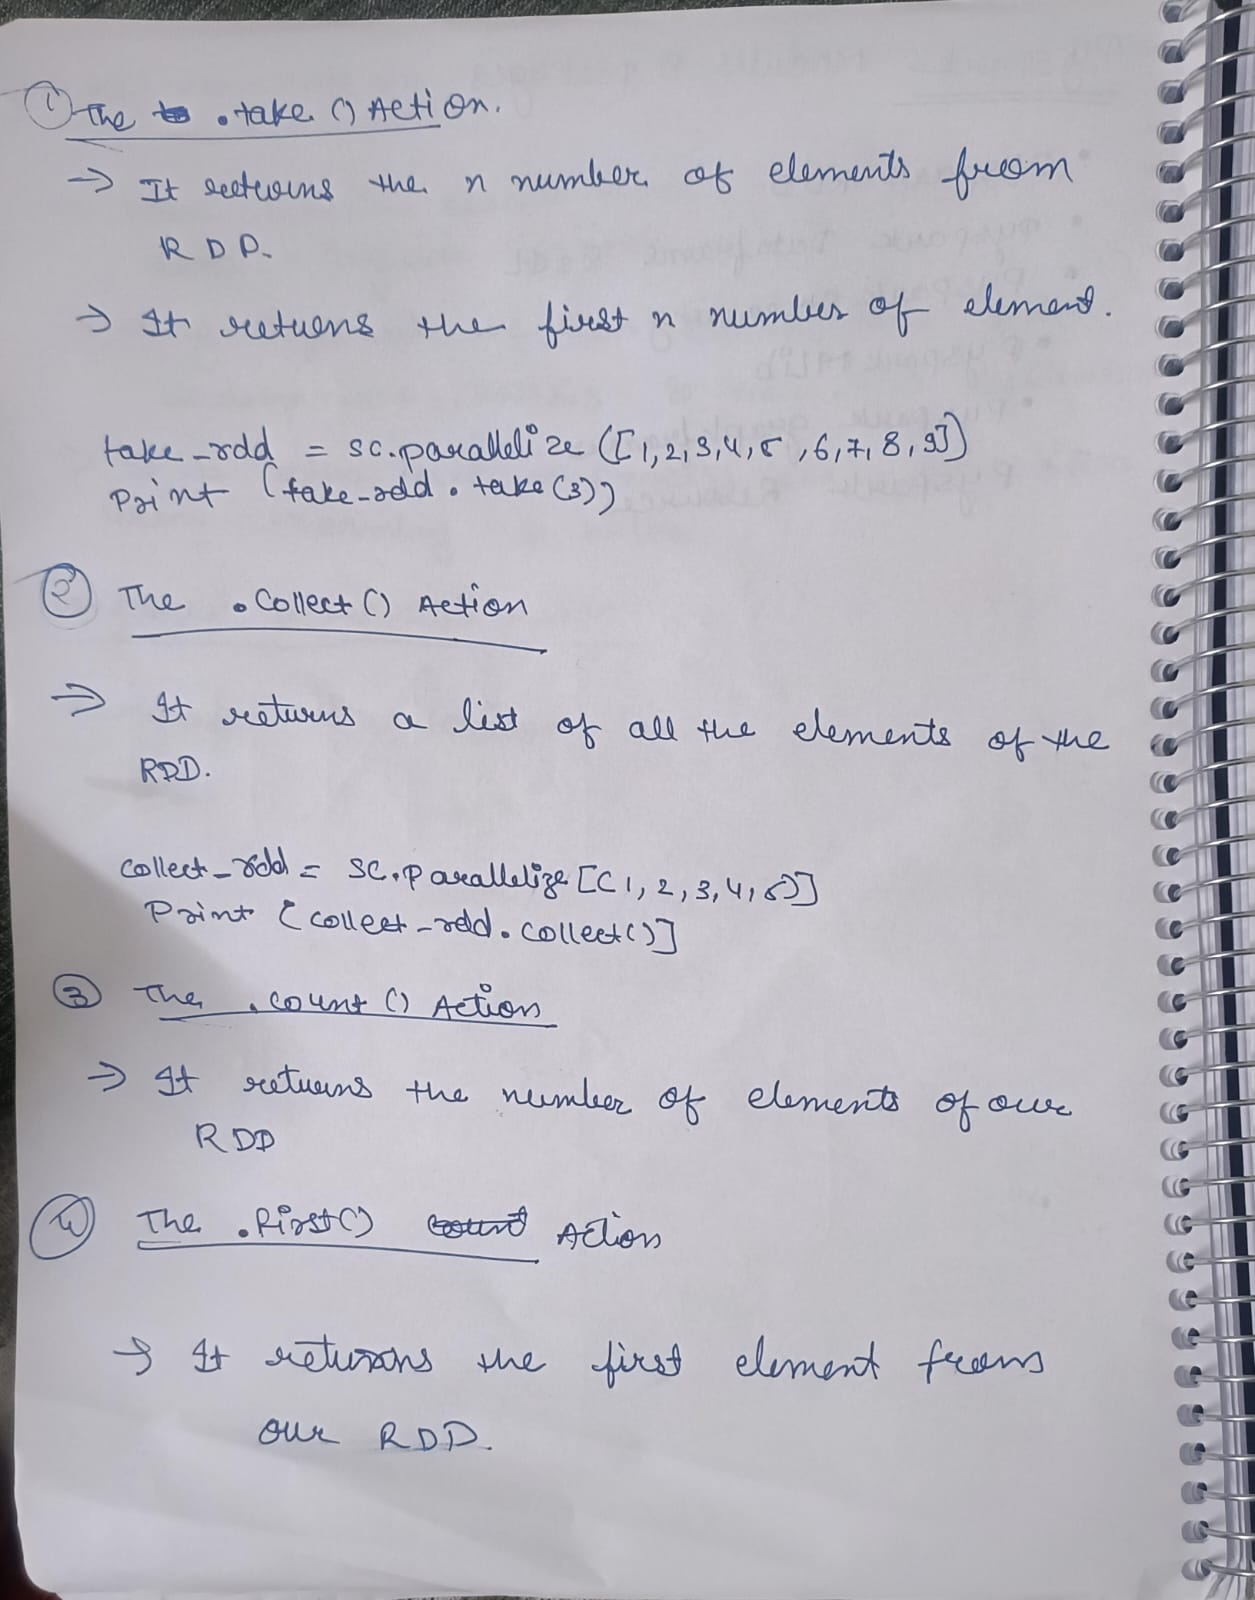 ① The .take () Action.
→ It returns the n number of elements from
RDD.
→ It returns the first n number of element.
take_rdd = sc.parallelize ([1,2,3,4,5,6,7,8,9])
Print (take_rdd.take(3))
② The .Collect () Action
→ It returns a list of all the elements of the
RDD.
Collect_rdd = SC.Parallelize [(1,2,3,4,5)]
Print [Collect_rdd.Collect()]
③ The .count () Action
→ It returns the number of elements of our
RDD
④ The .first() count Action
→ It returns the first element from
our RDD.